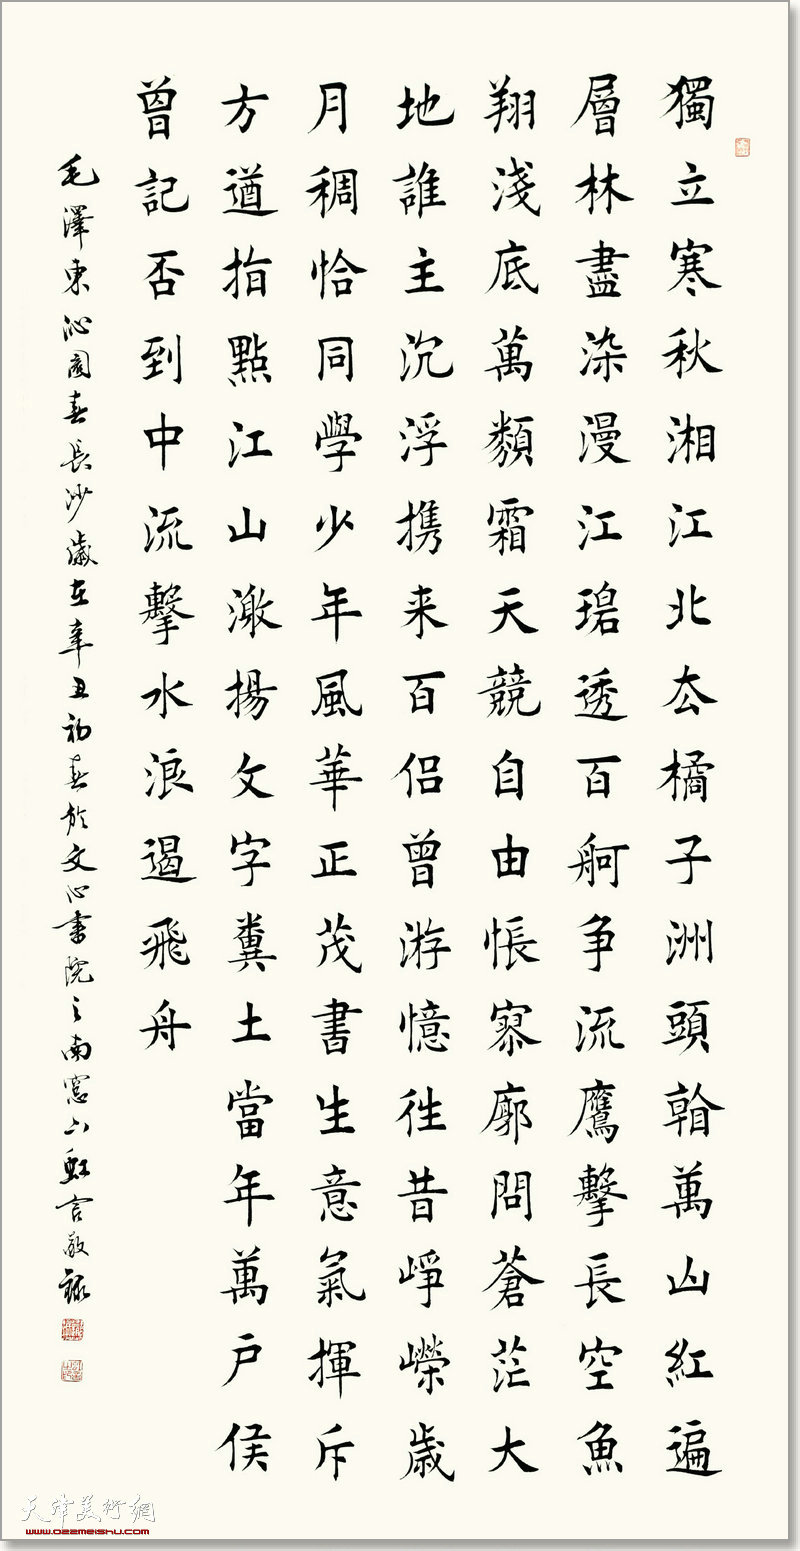 獨立寒秋湘江北去橘子洲頭看萬山紅遍
層林盡染漫江碧透百舸争流鷹擊長空魚
翔淺底萬類霜天競自由悵寥廓問蒼茫大
地誰主沉浮携来百侣曾游憶往昔崢嶸歲
月稠恰同學少年風華正茂書生意氣揮斥
方遒指點江山激揚文字糞土當年萬户侯
曾記否到中流擊水浪遏飛舟
毛澤東沁園春長沙歲在辛丑初春於文心書院之南窗下虹言敬録
天津美術網
www.022meishu.com